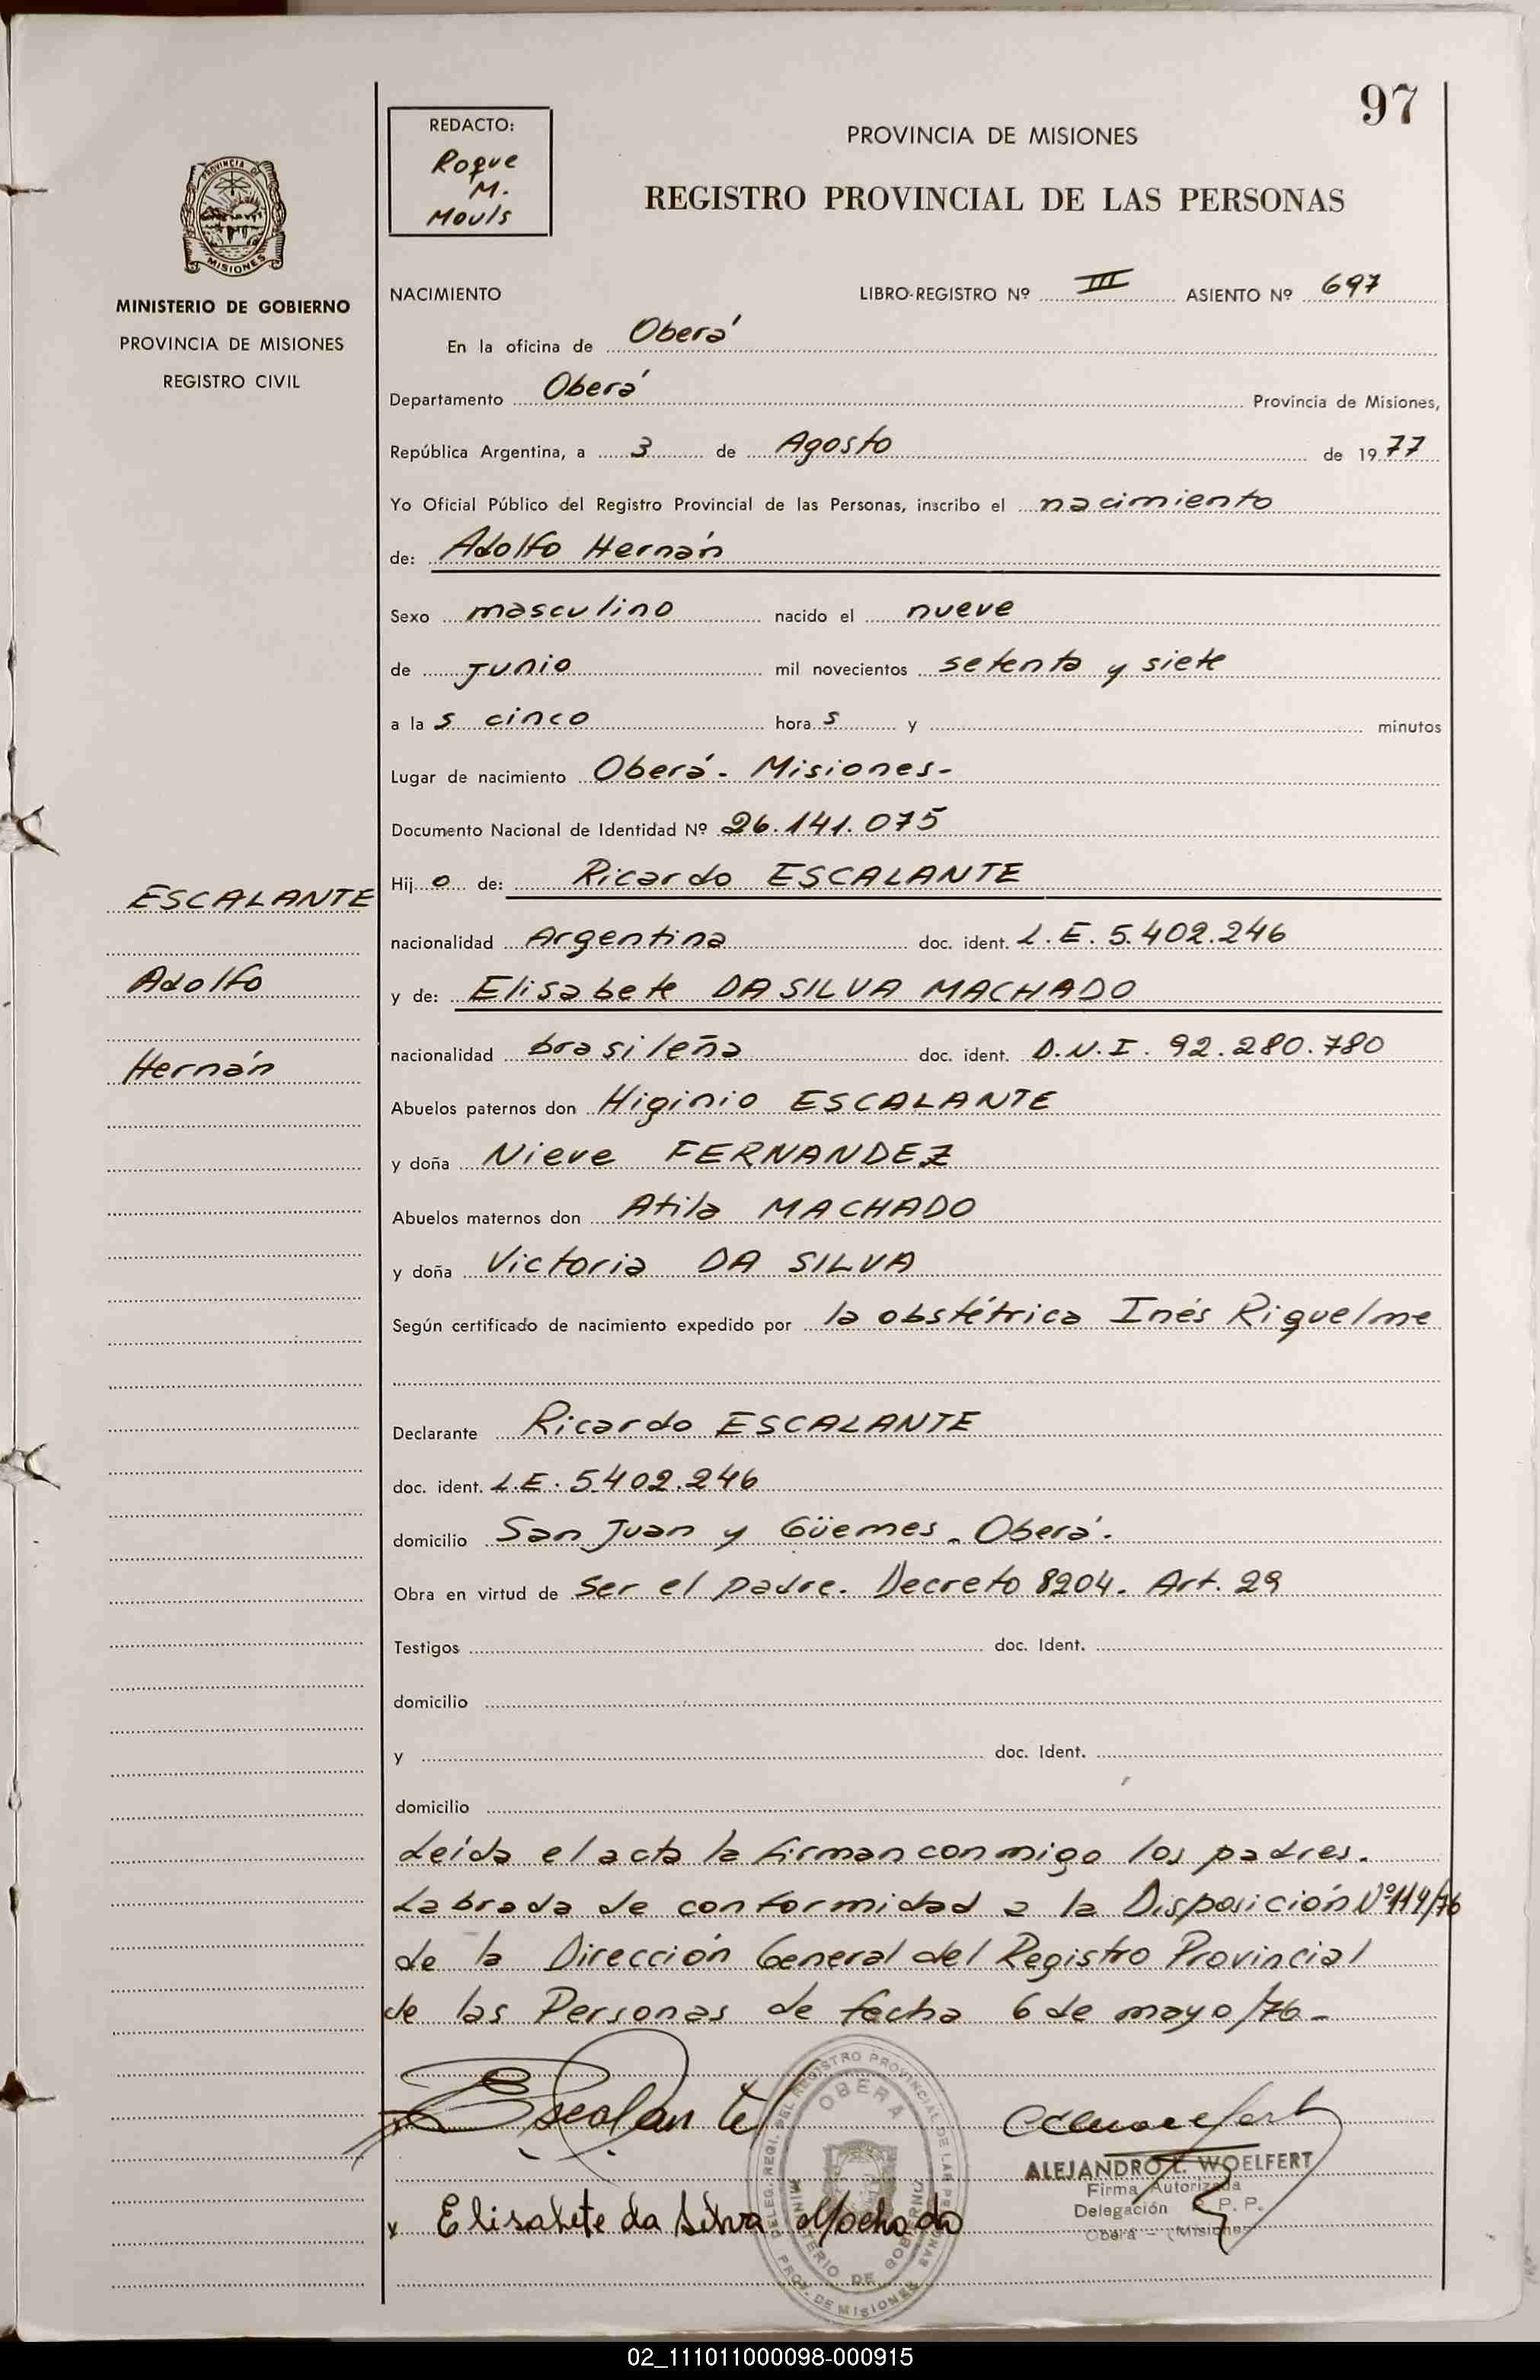 97
REDACTO:
Roque
M.
Mouls
PROVINCIA DE MISIONES
REGISTRO PROVINCIAL DE LAS PERSONAS
PROVINCIA DE
MISIONES
MINISTERIO DE GOBIERNO
PROVINCIA DE MISIONES
REGISTRO CIVIL
NACIMIENTO LIBRO-REGISTRO Nº III ASIENTO Nº 697
En la oficina de Oberá
Departamento Oberá Provincia de Misiones,
República Argentina, a 3 de Agosto de 1977
Yo Oficial Público del Registro Provincial de las Personas, inscribo el nacimiento
de: Adolfo Hernán
Sexo masculino nacido el nueve
de junio mil novecientos setenta y siete
a la s cinco hora s y minutos
Lugar de nacimiento Oberá - Misiones-
Documento Nacional de Identidad Nº 26.141.075
Hij o de: Ricardo ESCALANTE
ESCALANTE
nacionalidad Argentina doc. ident. L.E. 5.402.246
Adolfo
y de: Elisabete DA SILVA MACHADO
nacionalidad brasileña doc. ident. D.N.I. 92.280.780
Hernán
Abuelos paternos don Higinio ESCALANTE
y doña Nieve FERNANDEZ
Abuelos maternos don Atila MACHADO
y doña Victoria DA SILVA
Según certificado de nacimiento expedido por la obstétrica Inés Riquelme
Declarante Ricardo ESCALANTE
doc. ident. L.E. 5.402.246
domicilio San Juan y Güemes - Oberá.
Obra en virtud de ser el padre. Decreto 8204. Art. 29
Testigos doc. Ident.
domicilio
y doc. Ident.
domicilio
Leída el acta la firman conmigo los padres.
Labrada de conformidad a la Disposición Nº 114/76
de la Dirección General del Registro Provincial
de las Personas de fecha 6 de mayo/76-
Escalante
DELEG. REGI. DEL REGISTRO PROVINCIAL DE LAS PERSONAS
OBERA
MINISTERIO DE GOBIERNO
PROV. DE MISIONES
ALEJANDRO L. WOELFERT
Firma Autorizada
Delegación P. P.
Oberá - (Misiones)
x Elisabete da Silva Machado
02_111011000098-000915